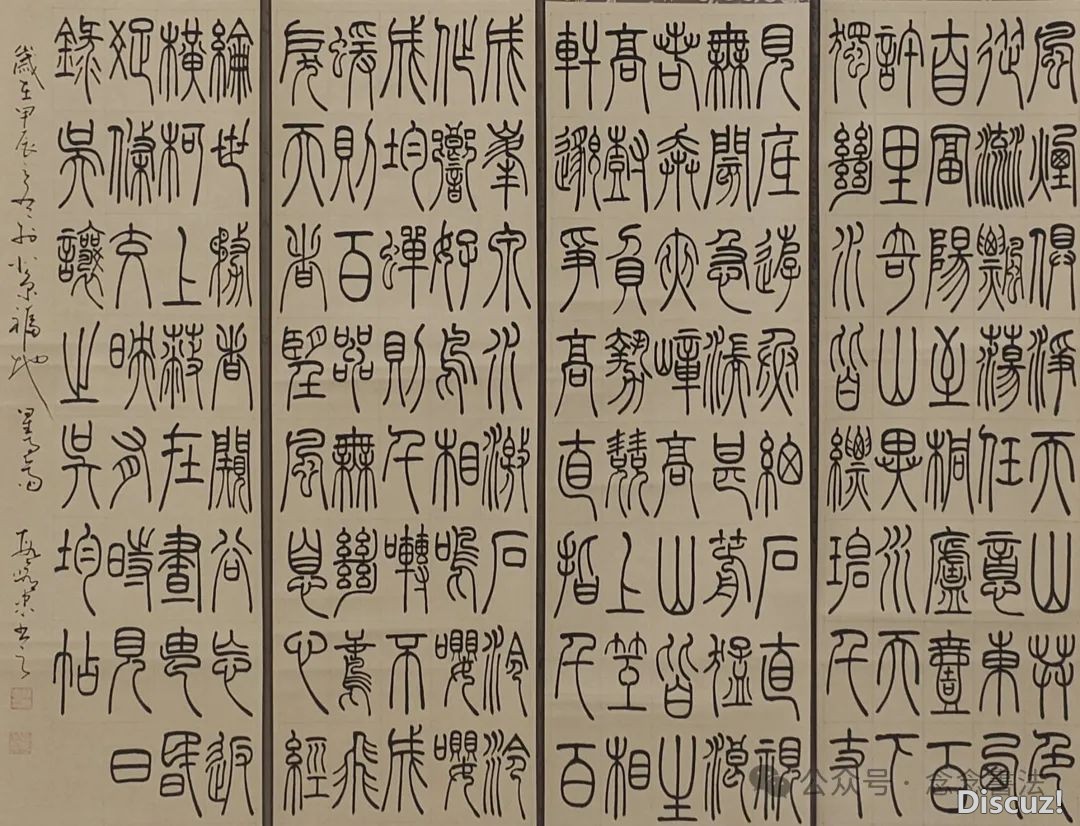 風煙俱淨天山共色
從流飄蕩任意東西
自富陽至桐廬壹百
許里奇山異水天下
獨絕水皆縹碧千丈
見底游魚細石直視
無閡急湍甚箭猛浪
若奔夾嶂高山皆生
高樹負勢競上互相
軒邈爭高直指千百
成峯泉水激石泠泠
作響好鳥相鳴嚶嚶
成均蟬則千囀不成
蝯則百嘂無絕鳶飛
戾天者望風息心經
綸世務者闚谷忘返
橫柯上蔽在晝昏
疏條交映有時見日
錄吳讓之吳均帖
歲在甲辰之冬於北京福地
公众号·念念书法
Discuz!